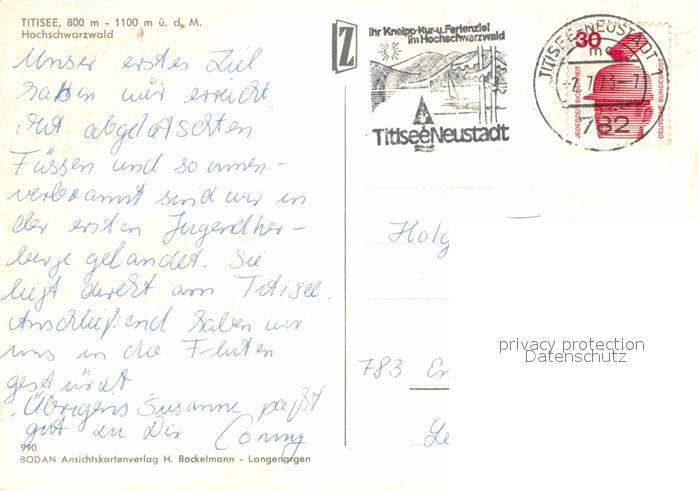 TITISEE, 800 m - 1100 m ü. d. M.
Hochschwarzwald
Unser erstes Ziel
haben wir erreicht.
Mit abgelatschten
Füssen und sonnen-
verbrannt sind wir in
der ersten Jugendher-
berge gelandet. Sie
liegt direkt am Titisee.
Anschließend haben wir
uns in die Fluten
gestürzt
Übrigens Susanne paßt
gut zu Dir Conny
990
BODAN Ansichtskartenverlag H. Bockelmann - Langenargen
Z
Ihr Kneipp-Kur-u. Ferienziel
im Hochschwarzwald
Titisee Neustadt
TITISEE-NEUSTADT 1
7.73-7
782
30
JEDERZEIT SICHERHEIT
DEUTSCHE BUNDESPOST
Holg
783 Em
privacy protection
Datenschutz